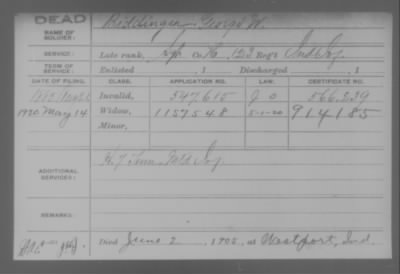 DEAD
NAME OF SOLDIER: Biddinger, George W.
SERVICE: Late rank, Co. 123 Reg't Ind. Inf.
TERM OF SERVICE: Enlisted , 1 Discharged , 1
DATE OF FILING. CLASS. APPLICATION NO. LAW. CERTIFICATE NO.
Invalid, 547.615 566.239
1920 May 14 Widow, 1157548 5-1-20 914185
Minor,
ADDITIONAL SERVICES:
REMARKS:
Died June 2 1905, at Westport, Ind.